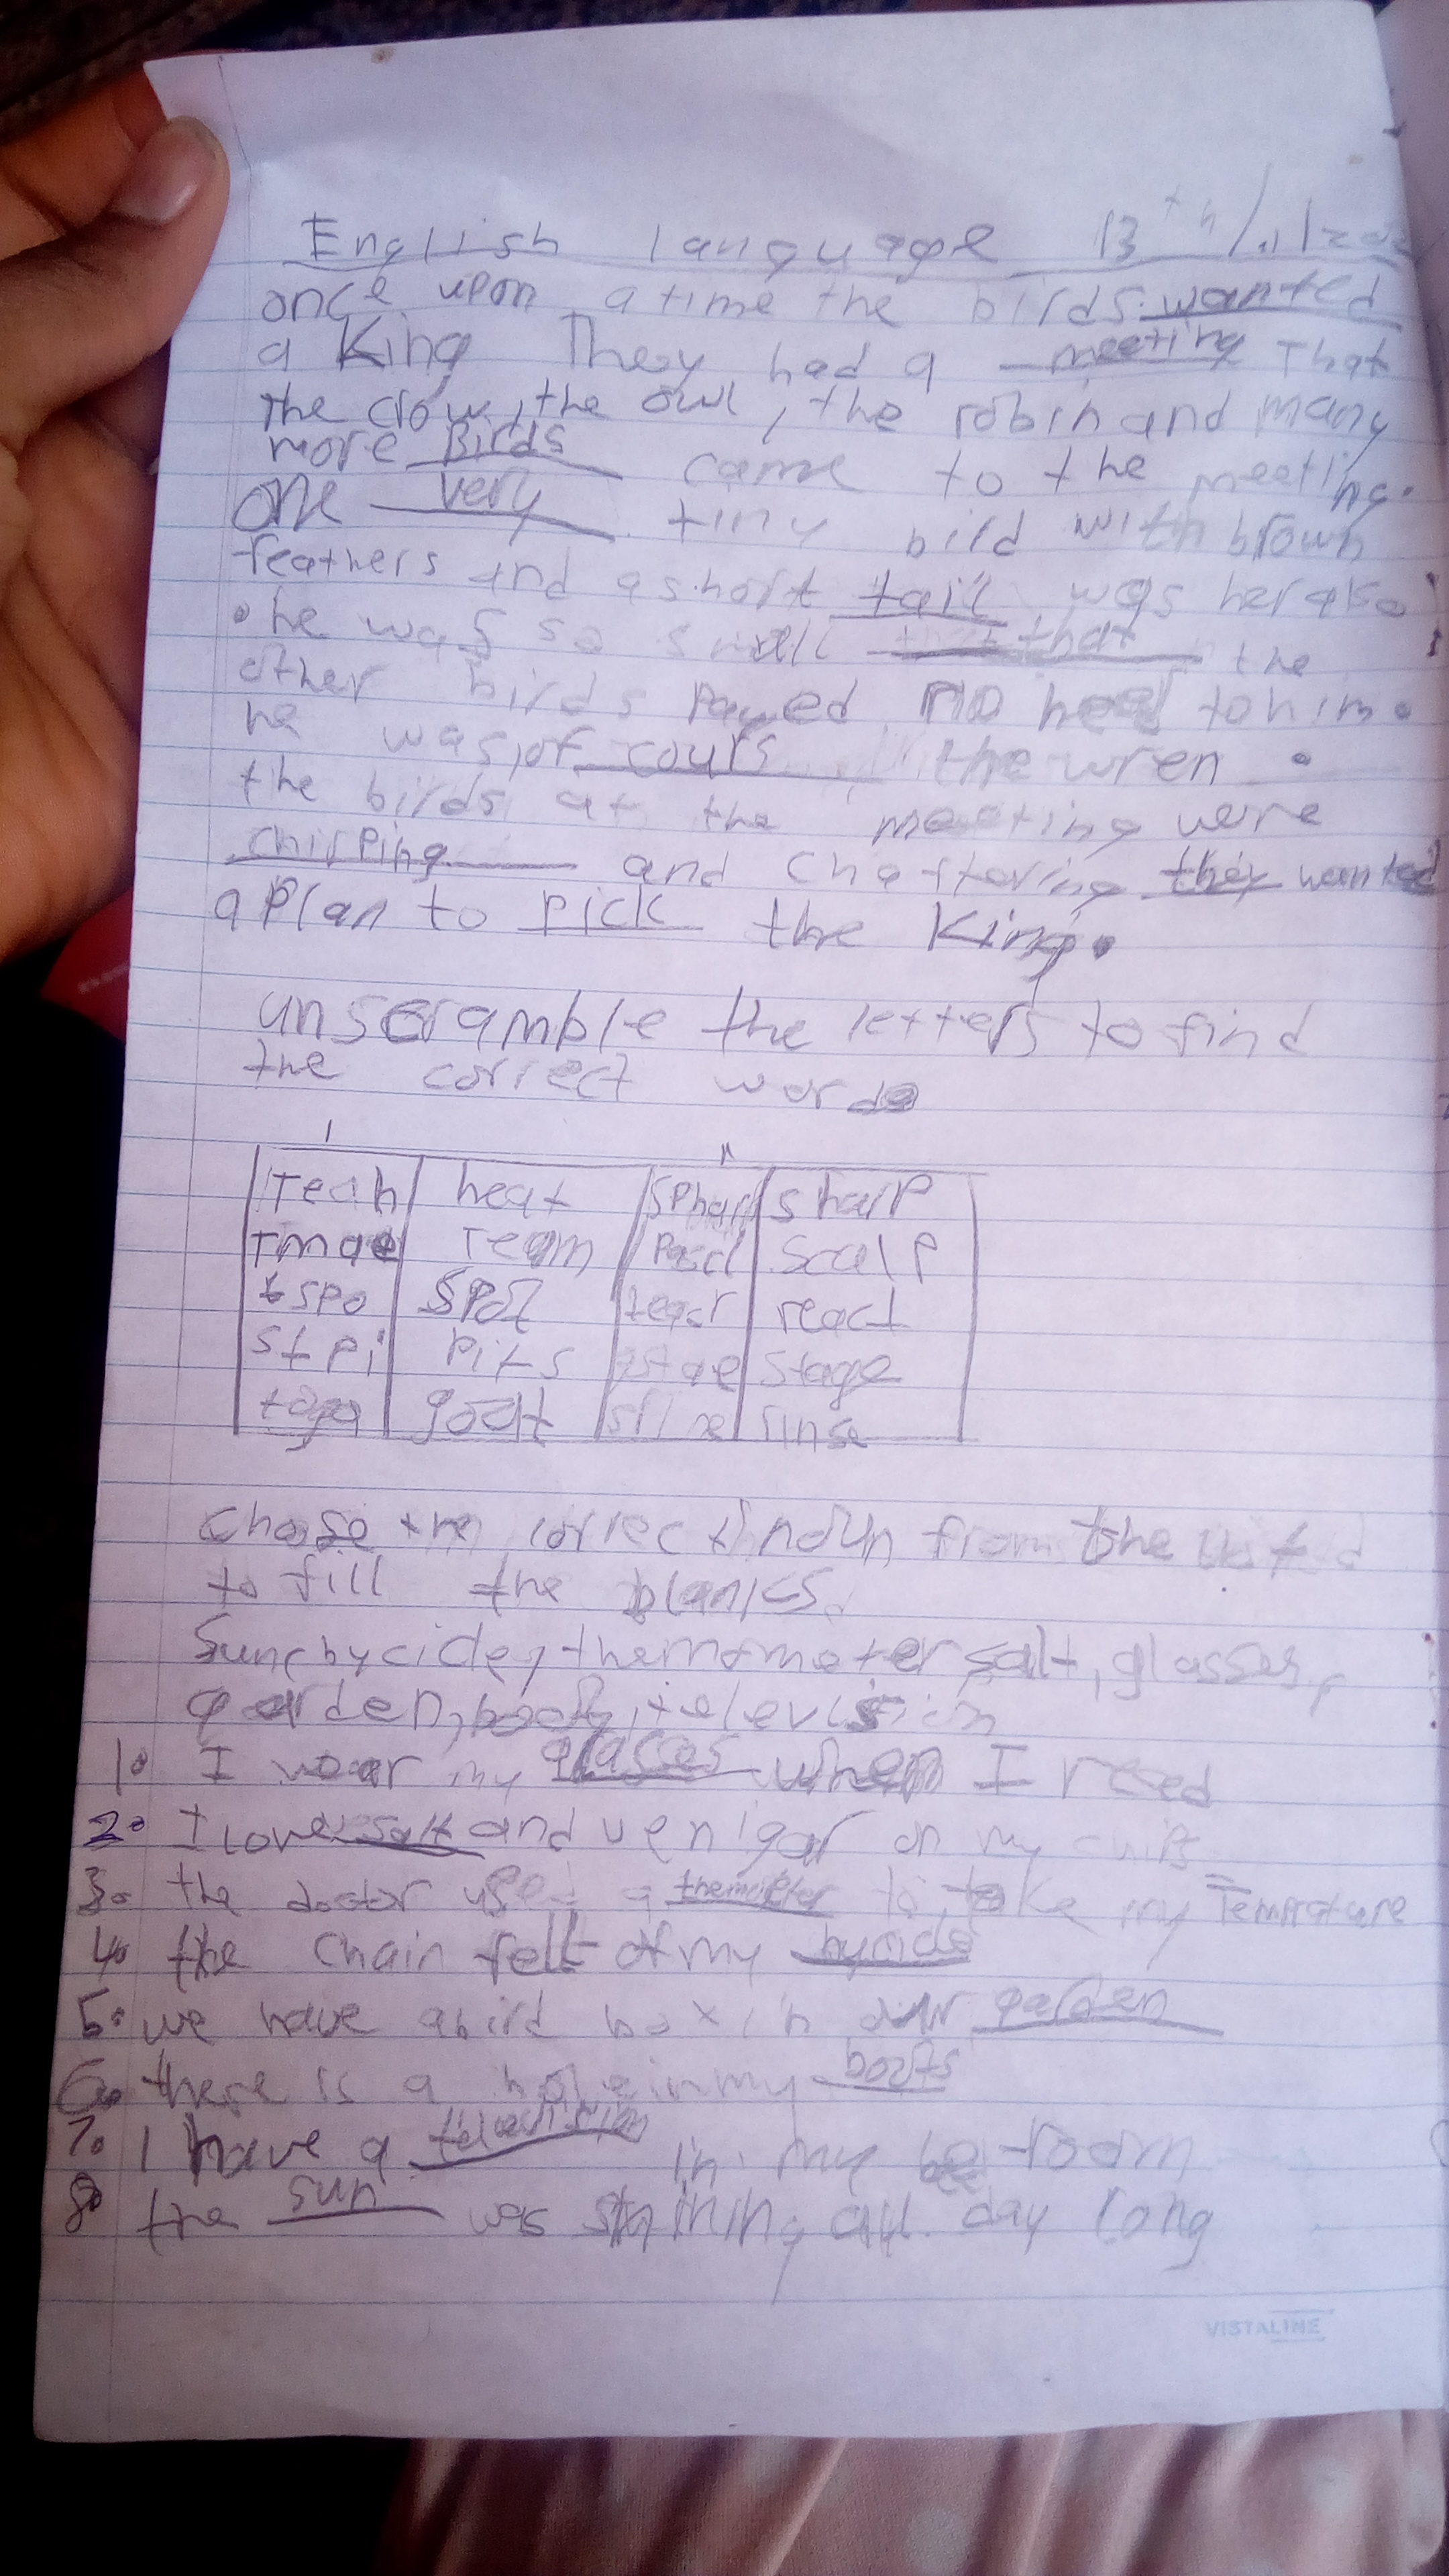 English language 13th
once upon a time the birds wanted
a King They had a meeting That
The crow, the owl, the robin and many
more Birds came to the meeting.
one very tiny bird with brown
feathers and a short tail was her also
. he was so small that the
other birds payed no heed to him.
he was, of cours the wren .
the birds at the meeting were
chirping and chattering they wanted
a plan to pick the King.
unscramble the letters to find
the correct word
Teah heat sphar sharp
Tmae Team Pascl Scalp
tspo spot teacr react
stpi pits stage
toga goat rinse
Chose correct noun from the list
to fill the blanks
Sun, bycicle, themometer salt, glasses,
garden, boots, television
1. I wear my glasses when I read
2. I love salt and venigar on my chips
3. the doctor used a themoter to take my Temprature
4. the chain fell of my bycicle
5. we have a bird box in our garden
6. there is a hole in my boots
7. I have a television in my bedroom
8. the sun was shining all day long
VISTALINE